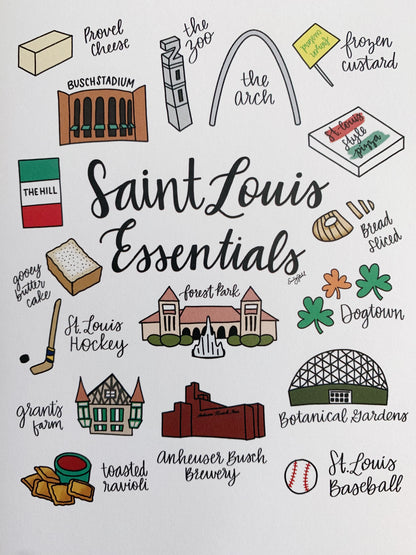 Provel
Cheese
the
zoo
ZOO
the
arch
frozen
custard
BUSCH STADIUM
St. Louis
style
pizza
THE HILL
Saint Louis
Essentials
Bread
Sliced
gooey
butter
cake
forest Park
Dogtown
St. Louis
Hockey
grant's
farm
Anheuser Busch
Brewery
Botanical Gardens
toasted
ravioli
St. Louis
Baseball